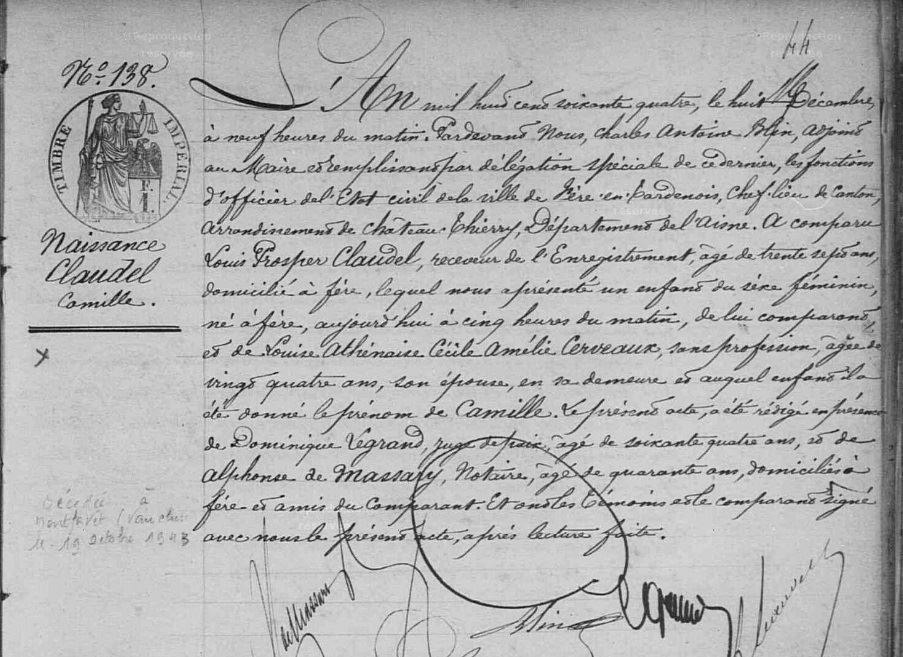 44
No. 138.
TIMBRE IMPÉRIAL.
Naissance
Claudel
Camille.
L'An mil huit cent soixante quatre, le huit Décembre,
à neuf heures du matin. Pardevant Nous, Charles Antoine Blin, adjoint
au Maire et remplissant par délégation spéciale de ce dernier, les fonctions
d'officier de l'Etat civil de la ville de Fère-en-Tardenois, Chef-lieu de Canton,
Arrondissement de Château-Thierry, Département de l'Aisne. A comparu
Louis Prosper Claudel, receveur de l'Enregistrement, âgé de trente sept ans,
domicilié à fère, lequel nous a présenté un enfant du séxe féminin,
né à fère, aujourd'hui à cinq heures du matin, de lui comparant,
et de Louise Athénaïse Cécile Amélie Cerveaux, sans profession, âgée de
vingt quatre ans, son épouse, en sa demeure et auquel enfant il a
été donné le prénom de Camille. Le présent acte, a été rédigé en présence
de Dominique Legrand, juge de paix, âgé de soixante quatre ans, et de
Alphonse de Massary, Notaire, âgé de quarante ans, domiciliés à
fère et amis du Comparant. Et ont les témoins et le comparant signé
avec nous le présent acte, après lecture faite.
Décédée à
Montfavet (Vaucluse)
le 19 octobre 1943
de Massary
Blin
Reproduction
réservée
Reproduction
réservée